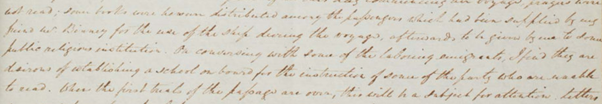 our voyage, prayers were
not read, some books were however distributed among the passengers which had been supplied by my
friend Mr. Binney for the use of the ship during the voyage, afterwards to be given by me to some
public religious institution. On conversing with some of the laboring emigrants, I find they are
desirous of establishing a school on board for the instruction of some of the party who are unable
to read. When the first trials of the passage are over, this will be a subject for attention. Letters